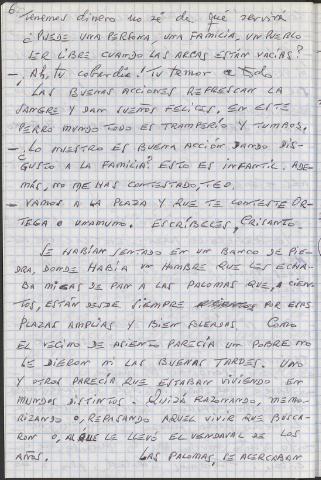 6.-
Tenemos dinero no sé de qué servirá
¿Puede una persona, una familia, un pueblo
ser libre cuando las arcas están vacías?
-¡Ah, tu cobardía! Tu temor a todo
Las buenas acciones refrescan la
sangre y dan sueños felices. En este
perro mundo todo es tramperío y tumbos.
-¿Lo nuestro es buena acción dando dis-
gusto a la familia? Esto es infantil. Ade-
más, no me has contestado, Teo.
- Vamos a la plaza y que te conteste Or-
tega o Unamuno. Escríbeles, Crisanto.
Se habían sentado en un banco de pie-
dra, donde había un hombre que les echa-
ba migas de pan a las palomas que, a cien-
tos, están desde siempre por esas
plazas amplias y bien soleadas. Como
el vecino de asiento parecía un pobre no
le dieron ni las buenas tardes. Uno
y otros parecía que estaban viviendo en
mundos distintos. Quizá razonando, memo-
rizando o, repasando aquel vivir que busca-
ron o, al que le llevó el vendaval de los
años. Las palomas, se acercaban